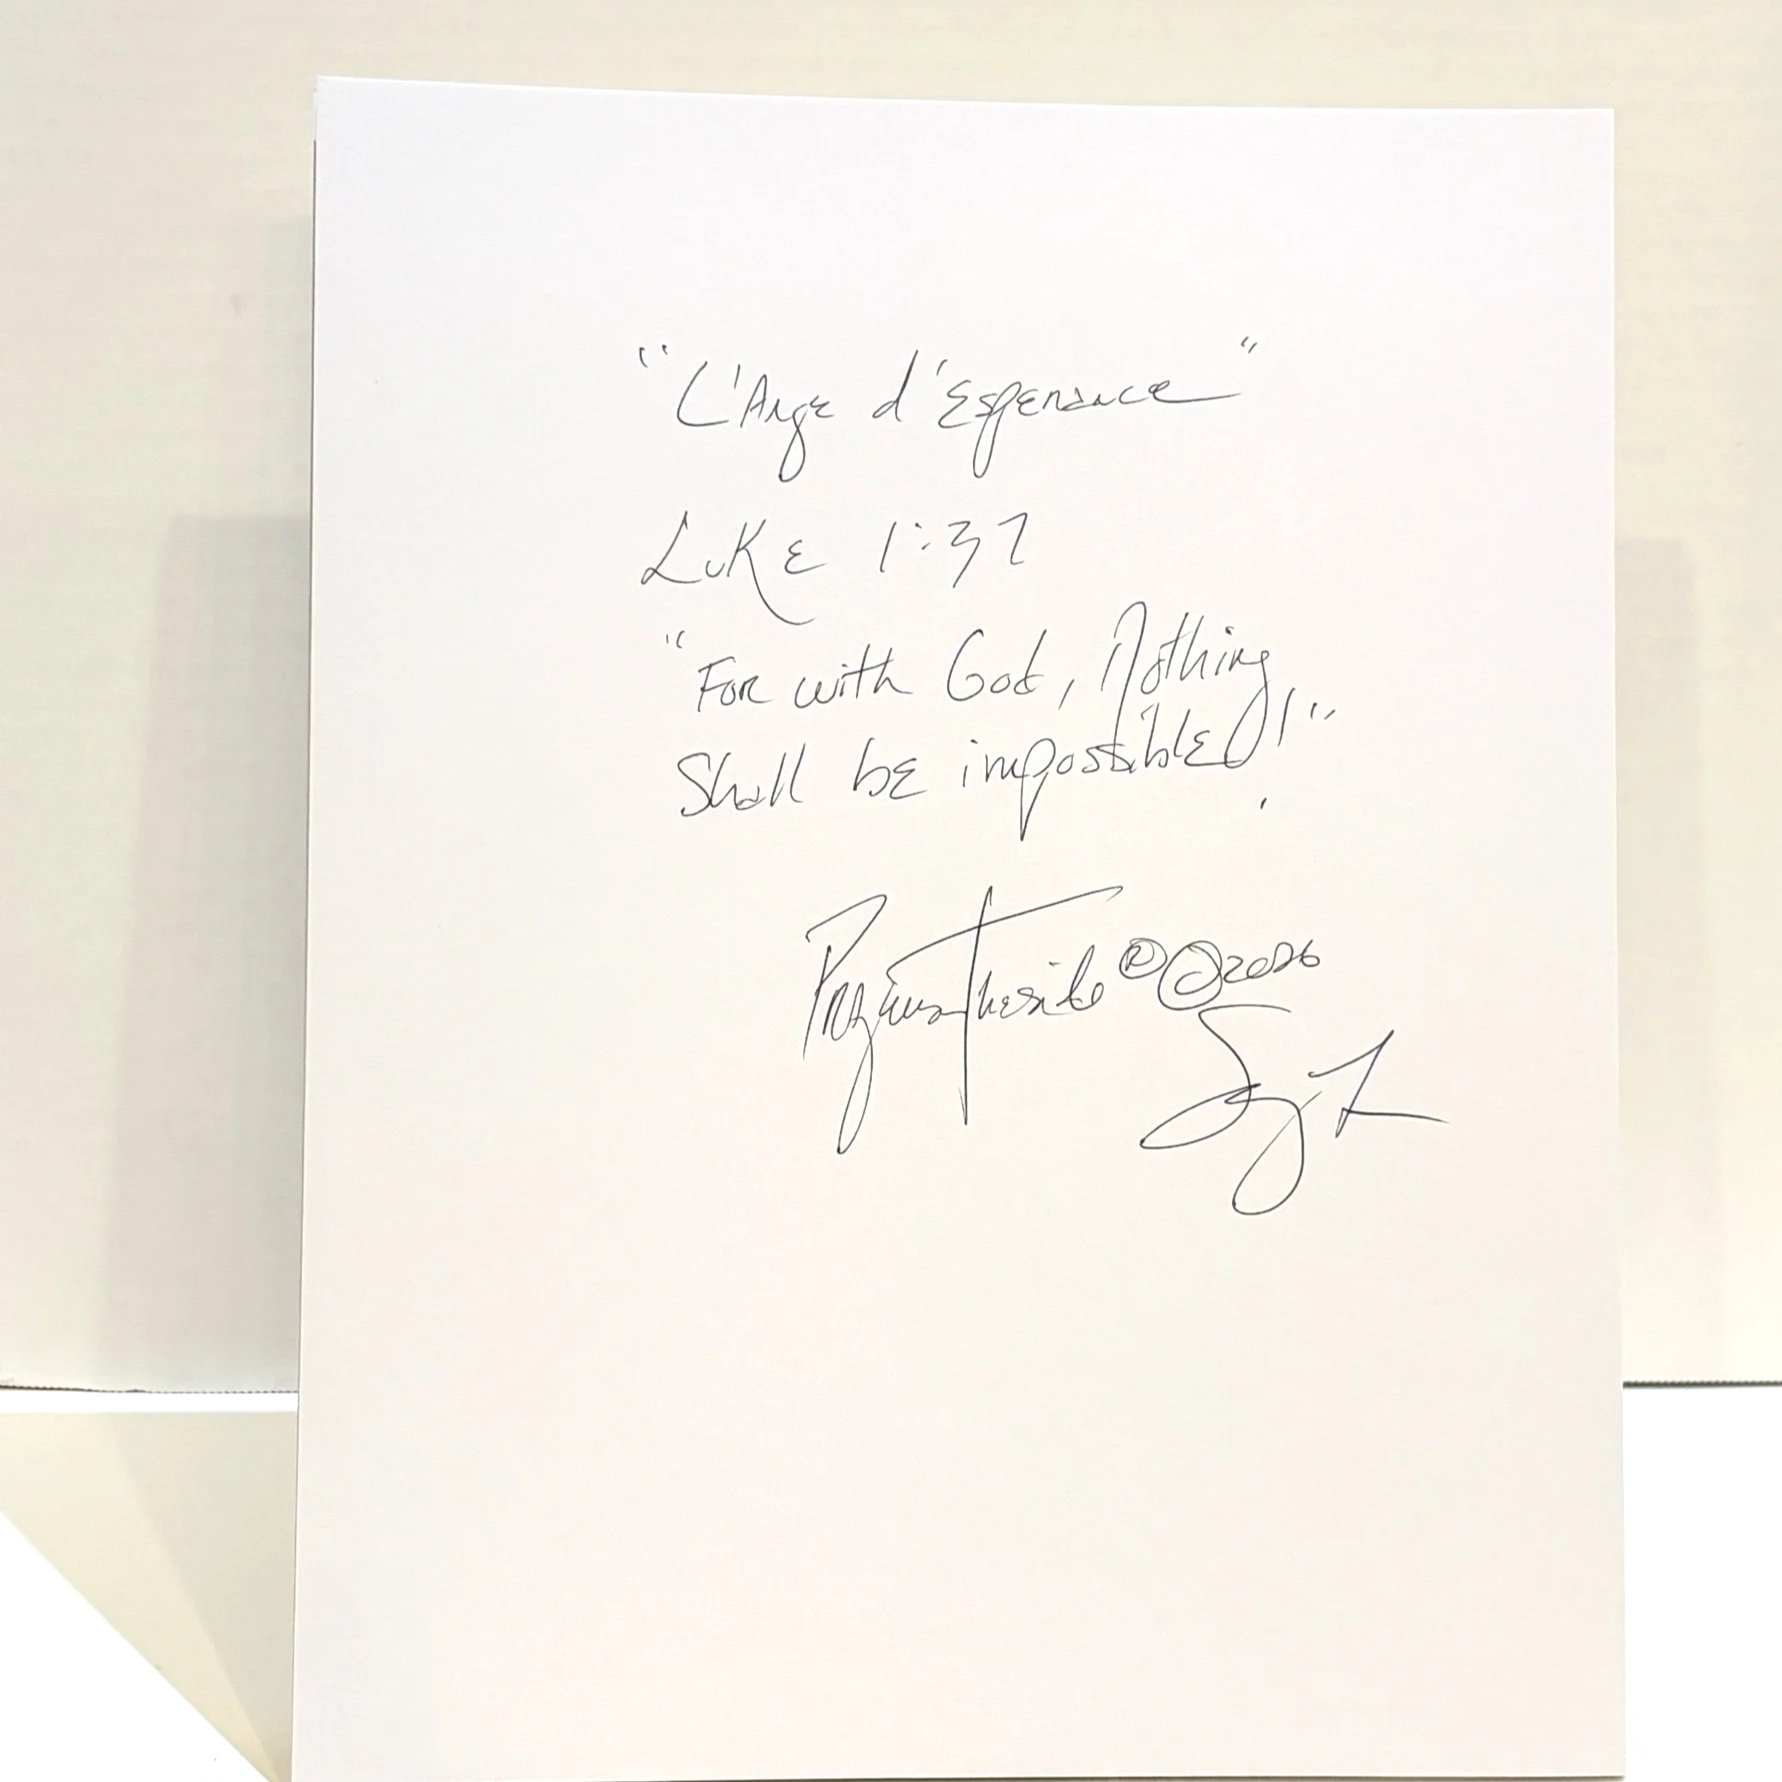 "L'Ange d'Esperance"
Luke 1:37
"For with God, Nothing
Shall be impossible!"
® © 2026